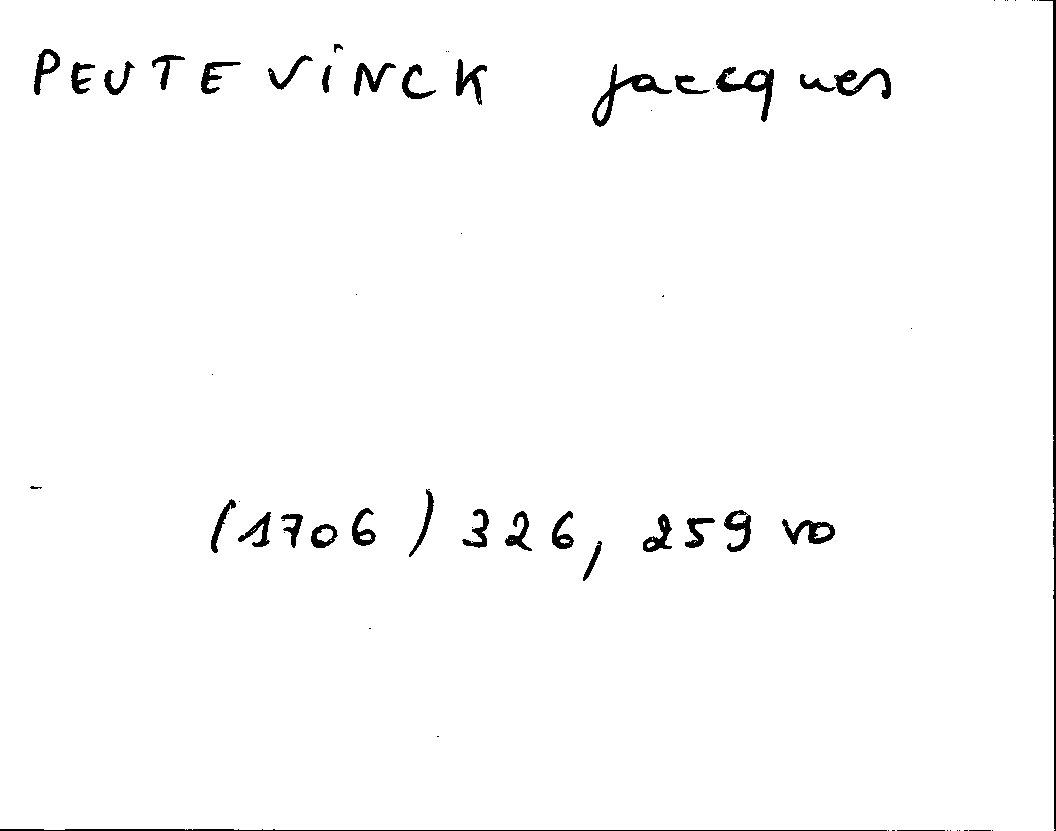 PEUTEVINCK Jaecques
(1706) 326, 259 vo